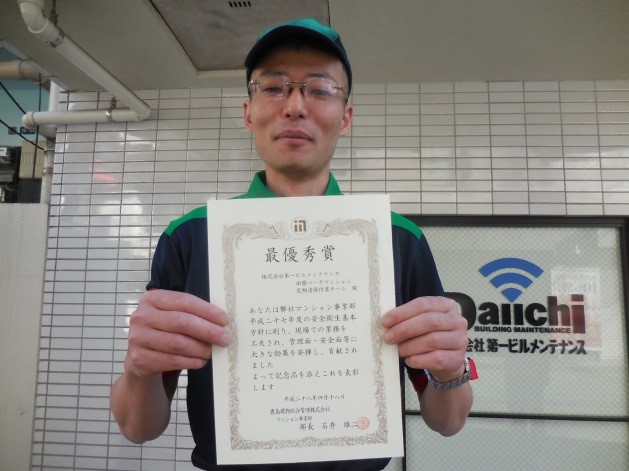 最優秀賞
株式会社第一ビルメンテナンス
田園パークマンション
定期清掃作業チーム 殿
あなたは弊社マンション事業部
平成二十七年度の安全衛生基本
方針に則り、現場での業務を
工夫され、管理面・安全面等に
大きな効果を発揮し、貢献され
ました
よって記念品を添えこれを表彰
します
平成二十八年四月十八日
鹿島建物総合管理株式会社
マンション事業部
部長 石井 雄二
Daiichi
BUILDING MAINTENANCE
会社 第一ビルメンテナンス